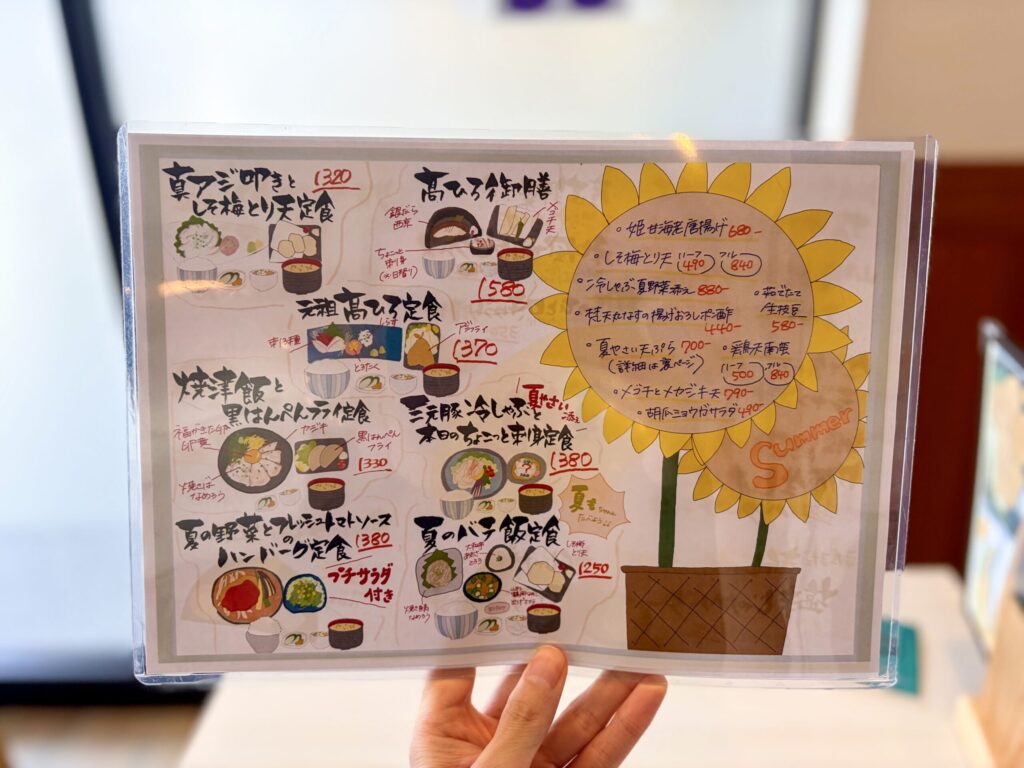 真アジ叩きと
しそ梅とり天定食
1320
高ひろ御膳
銀だら
西京
メゴチ天
ちょこっと
刺身
(※日替り)
1580
元祖高ひろ定食
しらす
刺身3種
アジフライ
とろたく
1370
焼津飯と
黒はんぺんフライ定食
カジキ
黒はんぺん
フライ
1330
焼さば
なめろう
三元豚冷しゃぶと
夏やさい
添え
本日のちょこっと刺身定食
1380
夏の野菜とフレッシュトマトソース
の
ハンバーグ定食
1380
プチサラダ
付き
夏のバテ飯定食
しそ梅
とり天
1250
なめろう
・姫甘海老唐揚げ 680-
・しそ梅とり天 ハーフ 490 フル 840
・冷しゃぶ夏野菜添え 880-
・茹でたて
生枝豆
580-
・梵天丸なすの揚げおろしポン酢
440-
・夏やさい天ぷら 700-
(詳細は裏ページ)
・鶏天南蛮
ハーフ 500 フル 840
・メゴチとメカジキ天 790-
・胡瓜ミョウガサラダ 490-
Summer